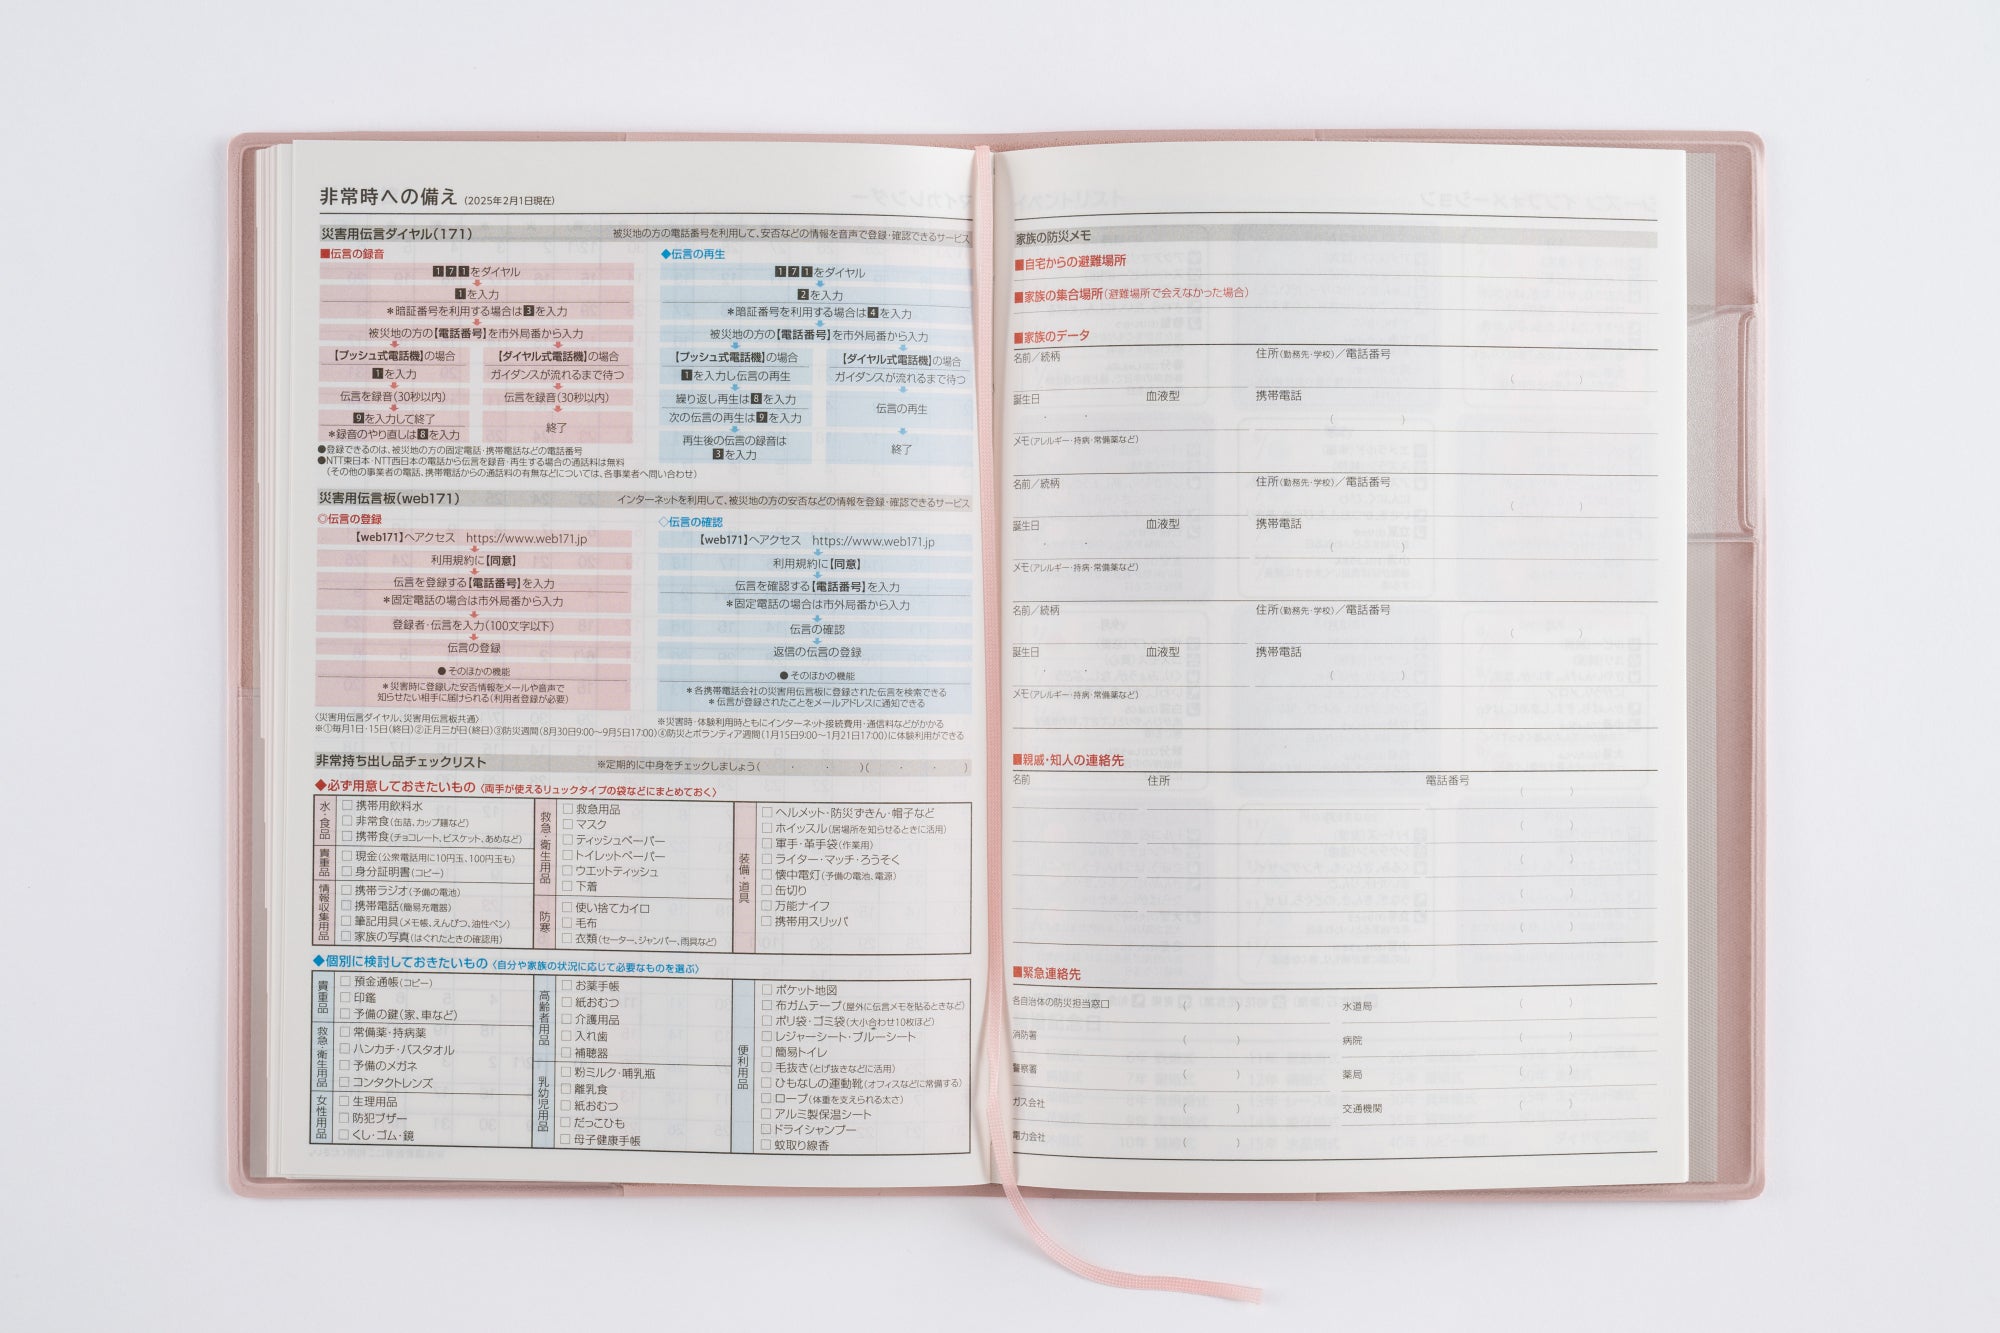 非常時への備え (2025年2月1日現在)
災害用伝言ダイヤル(171) 被災地の方の電話番号を利用して、安否などの情報を音声で登録・確認できるサービス
■伝言の録音
171をダイヤル
1を入力
*暗証番号を利用する場合は3を入力
被災地の方の【電話番号】を市外局番から入力
【プッシュ式電話機】の場合
1を入力
伝言を録音(30秒以内)
9を入力して終了
*録音のやり直しは8を入力
【ダイヤル式電話機】の場合
ガイダンスが流れるまで待つ
伝言を録音(30秒以内)
終了
◆伝言の再生
171をダイヤル
2を入力
*暗証番号を利用する場合は4を入力
被災地の方の【電話番号】を市外局番から入力
【プッシュ式電話機】の場合
1を入力し伝言の再生
繰り返し再生は8を入力
次の伝言の再生は9を入力
再生後の伝言の録音は
3を入力
【ダイヤル式電話機】の場合
ガイダンスが流れるまで待つ
伝言の再生
終了
●登録できるのは、被災地の方の固定電話・携帯電話などの電話番号
●NTT東日本・NTT西日本の電話から伝言を録音・再生する場合の通話料は無料
(その他の事業者の電話、携帯電話からの通話料の有無などについては、各事業者へ問い合わせ)
災害用伝言板(web171) インターネットを利用して、被災地の方の安否などの情報を登録・確認できるサービス
◎伝言の登録
【web171】へアクセス https://www.web171.jp
利用規約に【同意】
伝言を登録する【電話番号】を入力
*固定電話の場合は市外局番から入力
登録者・伝言を入力(100文字以下)
伝言の登録
●そのほかの機能
*災害時に登録した安否情報をメールや音声で
知らせたい相手に届けられる(利用者登録が必要)
◇伝言の確認
【web171】へアクセス https://www.web171.jp
利用規約に【同意】
伝言を確認する【電話番号】を入力
*固定電話の場合は市外局番から入力
伝言の確認
返信の伝言の登録
●そのほかの機能
*各携帯電話会社の災害用伝言板に登録された伝言を検索できる
*伝言が登録されたことをメールアドレスに通知できる
〈災害用伝言ダイヤル、災害用伝言板共通〉 ※災害時・体験利用時ともにインターネット接続費用・通信料などがかかる
※①毎月1日・15日(終日)②正月三が日(終日)③防災週間(8月30日9:00〜9月5日17:00)④防災とボランティア週間(1月15日9:00〜1月21日17:00)に体験利用ができる
非常持ち出し品チェックリスト ※定期的に中身をチェックしましょう( ・ ・ )( ・ ・ )
◆必ず用意しておきたいもの〈両手が使えるリュックタイプの袋などにまとめておく〉
水・食品
□携帯用飲料水
□非常食(缶詰、カップ麺など)
□携帯食(チョコレート、ビスケット、あめなど)
貴重品
□現金(公衆電話用に10円玉、100円玉も)
□身分証明書(コピー)
情報収集用品
□携帯ラジオ(予備の電池)
□携帯電話(簡易充電器)
□筆記用具(メモ帳、えんぴつ、油性ペン)
□家族の写真(はぐれたときの確認用)
救急・衛生用品
□救急用品
□マスク
□ティッシュペーパー
□トイレットペーパー
□ウエットティッシュ
□下着
防寒
□使い捨てカイロ
□毛布
□衣類(セーター、ジャンパー、雨具など)
装備・道具
□ヘルメット・防災ずきん・帽子など
□ホイッスル(居場所を知らせるときに活用)
□軍手・革手袋(作業用)
□ライター・マッチ・ろうそく
□懐中電灯(予備の電池、電源)
□缶切り
□万能ナイフ
□携帯用スリッパ
◆個別に検討しておきたいもの〈自分や家族の状況に応じて必要なものを選ぶ〉
貴重品
□預金通帳(コピー)
□印鑑
□予備の鍵(家、車など)
救急・衛生用品
□常備薬・持病薬
□ハンカチ・バスタオル
□予備のメガネ
□コンタクトレンズ
女性用品
□生理用品
□防犯ブザー
□くし・ゴム・鏡
高齢者用品
□お薬手帳
□紙おむつ
□介護用品
□入れ歯
□補聴器
乳幼児用品
□粉ミルク・哺乳瓶
□離乳食
□紙おむつ
□だっこひも
□母子健康手帳
便利用品
□ポケット地図
□布ガムテープ(屋外に伝言メモを貼るときなど)
□ポリ袋・ゴミ袋(大小合わせ10枚ほど)
□レジャーシート・ブルーシート
□簡易トイレ
□毛抜き(とげ抜きなどに活用)
□ひもなしの運動靴(オフィスなどに常備する)
□ロープ(体重を支えられる太さ)
□アルミ製保温シート
□ドライシャンプー
□蚊取り線香
家族の防災メモ
■自宅からの避難場所
■家族の集合場所(避難場所で会えなかった場合)
■家族のデータ
名前/続柄 住所(勤務先・学校)/電話番号
( )
誕生日 血液型 携帯電話
・ ・ ( )
メモ(アレルギー・持病・常備薬など)
名前/続柄 住所(勤務先・学校)/電話番号
( )
誕生日 血液型 携帯電話
・ ・ ( )
メモ(アレルギー・持病・常備薬など)
名前/続柄 住所(勤務先・学校)/電話番号
( )
誕生日 血液型 携帯電話
・ ・ ( )
メモ(アレルギー・持病・常備薬など)
■親戚・知人の連絡先
名前 住所 電話番号
( )
( )
( )
( )
( )
■緊急連絡先
各自治体の防災担当窓口 ( ) 水道局 ( )
消防署 ( ) 病院 ( )
警察署 ( ) 薬局 ( )
ガス会社 ( ) 交通機関 ( )
電力会社 ( )